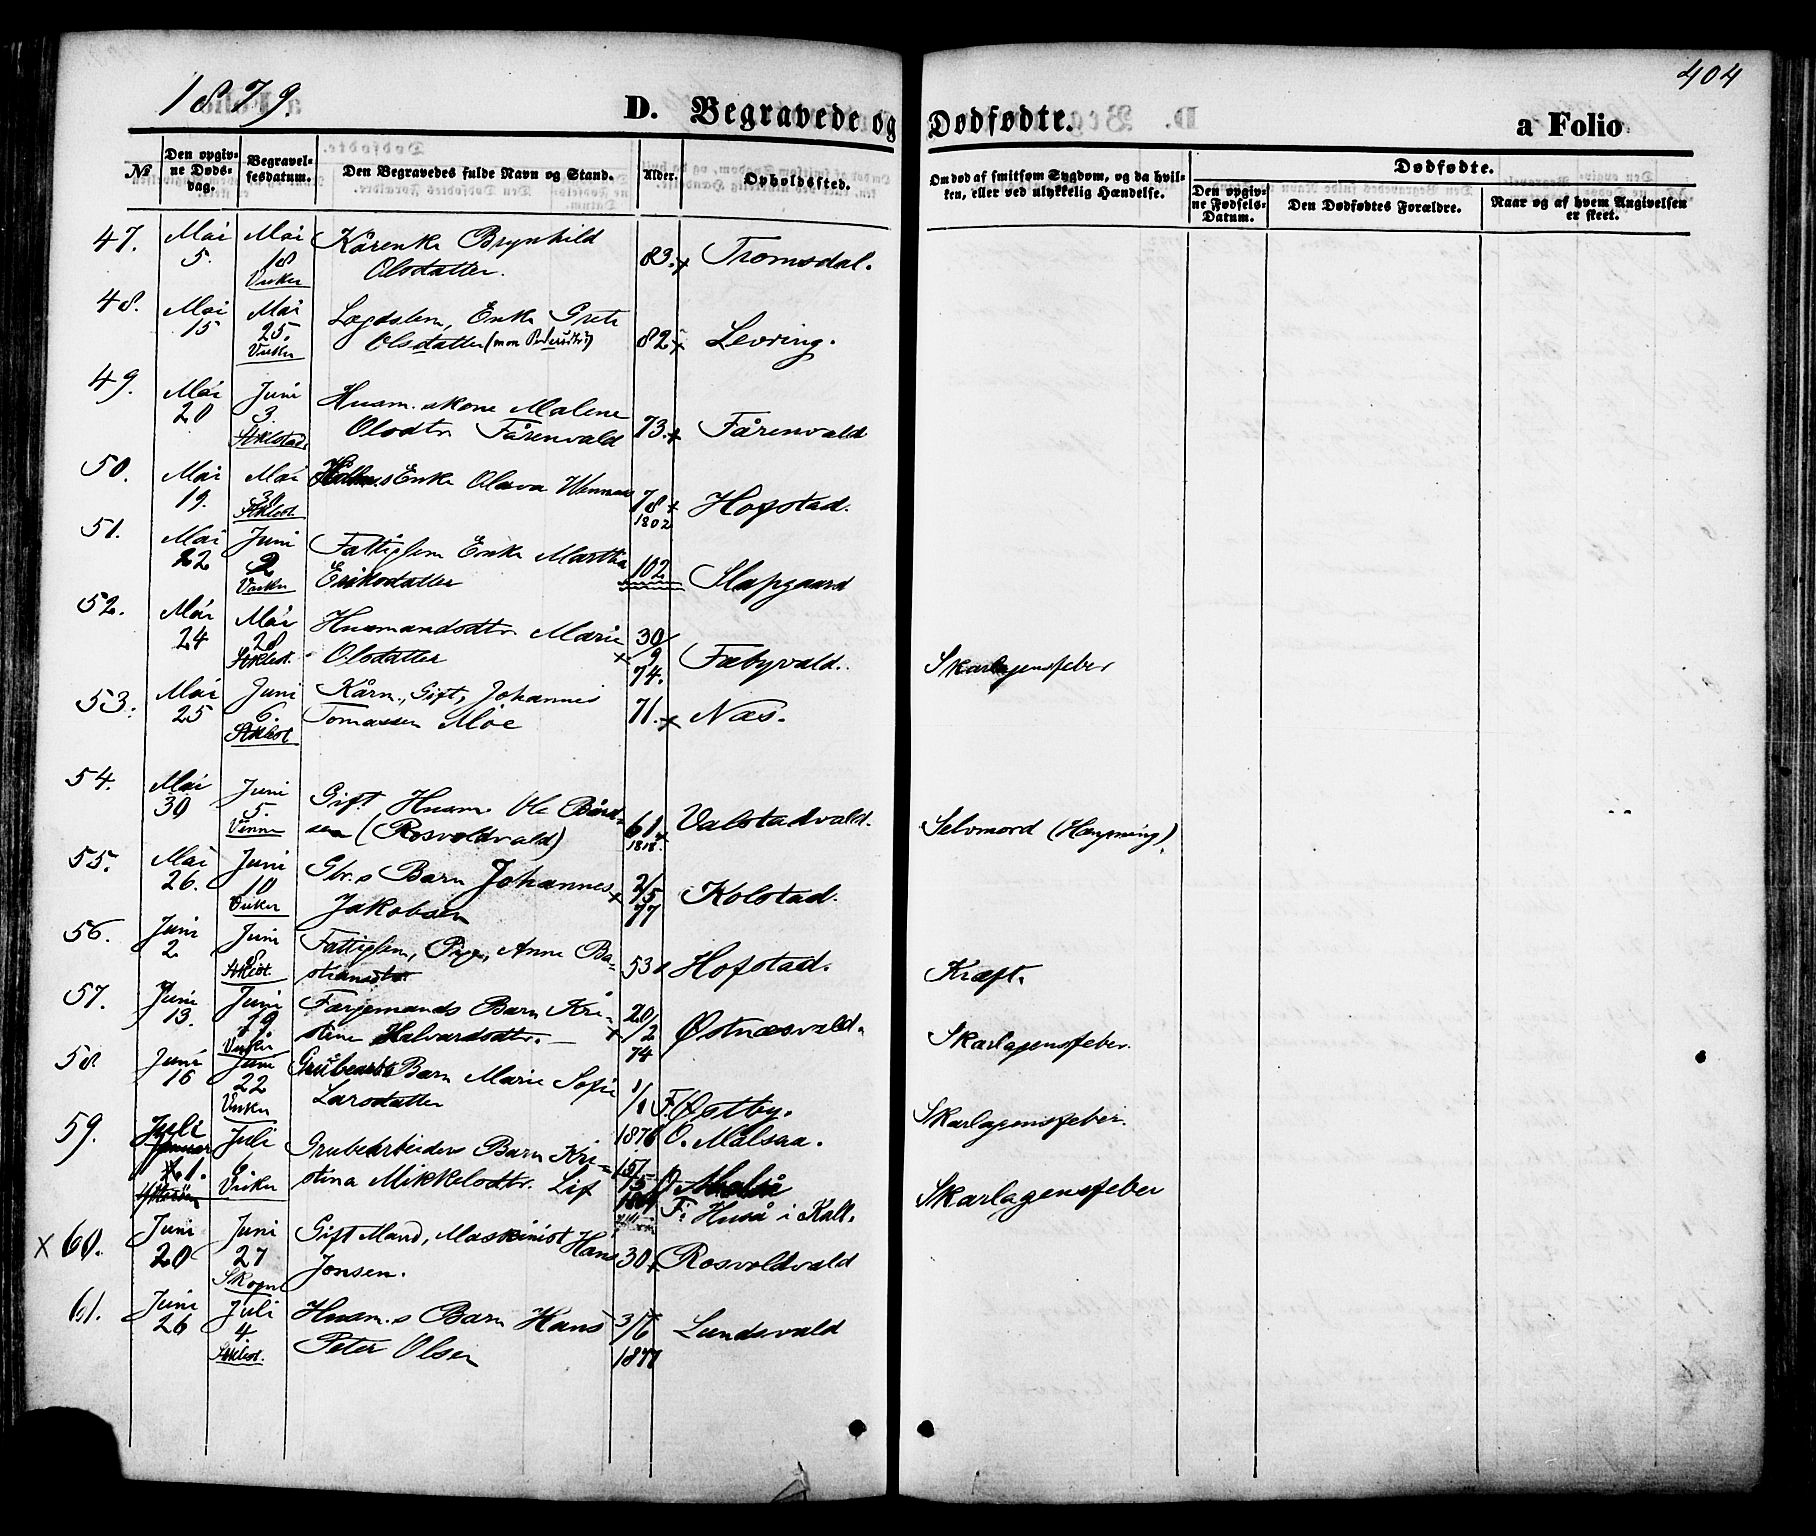 1879.
D. Begravede og Dødfødte.
a Folio
404
No
Den opgiv-
ne Døds-
dag.
Begravel-
sesdatum.
Den Begravedes fulde Navn og Stand.
Alder.
Opholdssted.
Om død af smitsom Sygdom, og da hvil-
ken, eller ved ulykkelig Hændelse.
Dødfødte.
Den opgiv-
ne Fødsels-
Datum.
Den Dødfødtes Forældre.
Naar og af hvem Angivelsen
er skeet.
47. Mai 5. Mai 18 Vuku Kårenke Brynhild
Olsdatter. 83. x Tromsdal.
48. Mai 15 Mai 25. Vuku Lægdslem, Enke Grete
Olsdatter 82 x Levring.
49. Mai 20 Juni 3. Stiklestad Husm.skone Malene
Olsdtr Fårenvald 73. x Fårenvald
50. Mai 19. Mai 30 Stiklest. Enke Olava
78 x 1802 Hofstad.
51. Mai 22 Juni 2 Vuku Fattiglem Enke Martha
Eriksdatter 102 Slapgaard
52. Mai 24 Mai 28 Stiklest. Husmandsdtr Marie
Olsdatter x 30/9 74. Fæbyvald. Skarlagensfeber
53. Mai 25 Juni 6. Stiklest Kårm., Gift, Johannes
Tomassen Moe 71. x Næs.
54. Mai 30 Juni 5. Vinne Gift Husm. Ole Bård-
sen (Rosvoldvald) 61 x 1818. Valstadvald. Selvmord (Hængning).
55. Mai 26. Juni 10 Vuku Gbr.s Barn Johannes
Jakobsen x 2/5 77 Kolstad.
56. Juni 2. Juni 8 Stiklest. Fattiglem, Pige, Anne Ba-
stiansdtr 53 x Hofstad. Kræft.
57. Juni 13. Juni 19. Vuku Færjemands Barn Kri-
stine Halvardsdtr. x 20/12 74 Østnæsvald. Skarlagensfeber.
58 Juni 16 Juni 22 Vuku Grubearb.s Barn Marie Sofie
Larsdatter 1/1 1876 F. Østby.
O. Målsaa. Skarlagensfeber.
59. Juli 1. Juli 6 Vuku Grubearbeiders Barn Kri-
stina Mikkelsdtr. Lif 15/5
F: Huså i Kall. Skarlagensfeber
x 60. Juni 20 Juni 27 Skogn Gift Mand, Maskinist Hans
Jonsen. 30 x Rosvoldvald
61. Juni 26 Juli 4. Stiklest. Husm.s Barn Hans
Peter Olsen 3/6 1877 Lundsvald